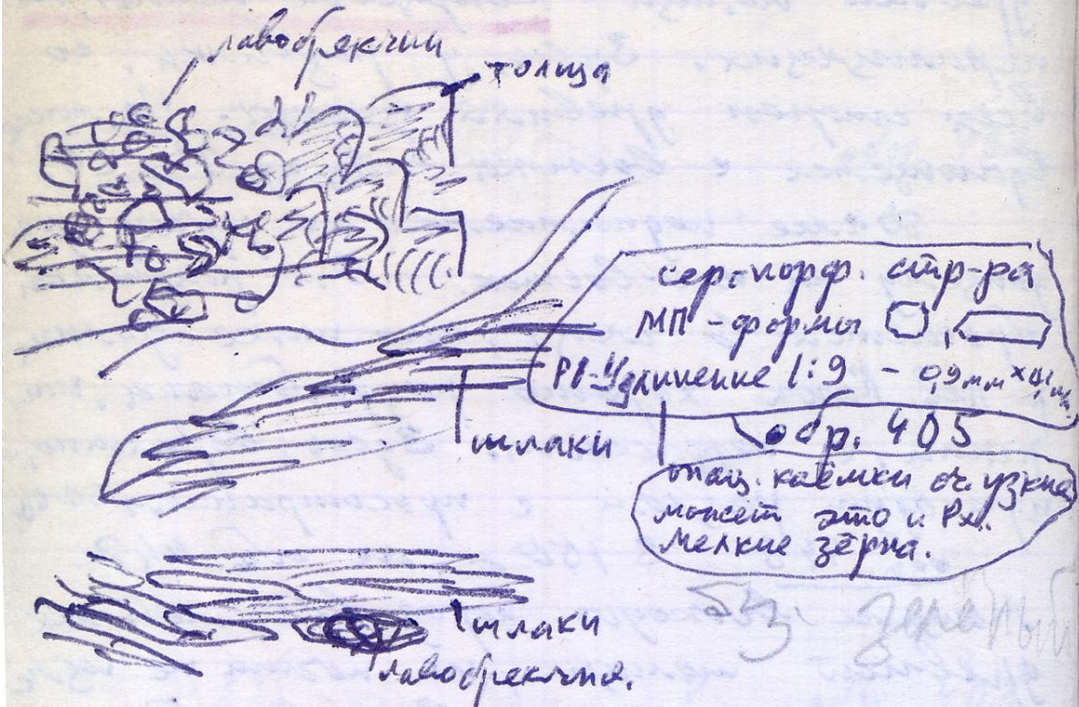 лавобрекчии
толща
сер. порф. стр-ра
МП - формы
удлинение 1:9 - 0,9 мм х 0,1 мм
обр. 405
шлаки
опац. каёмки оч. узкие
может это и Px.
мелкие зёрна.
шлаки
лавобрекчия.